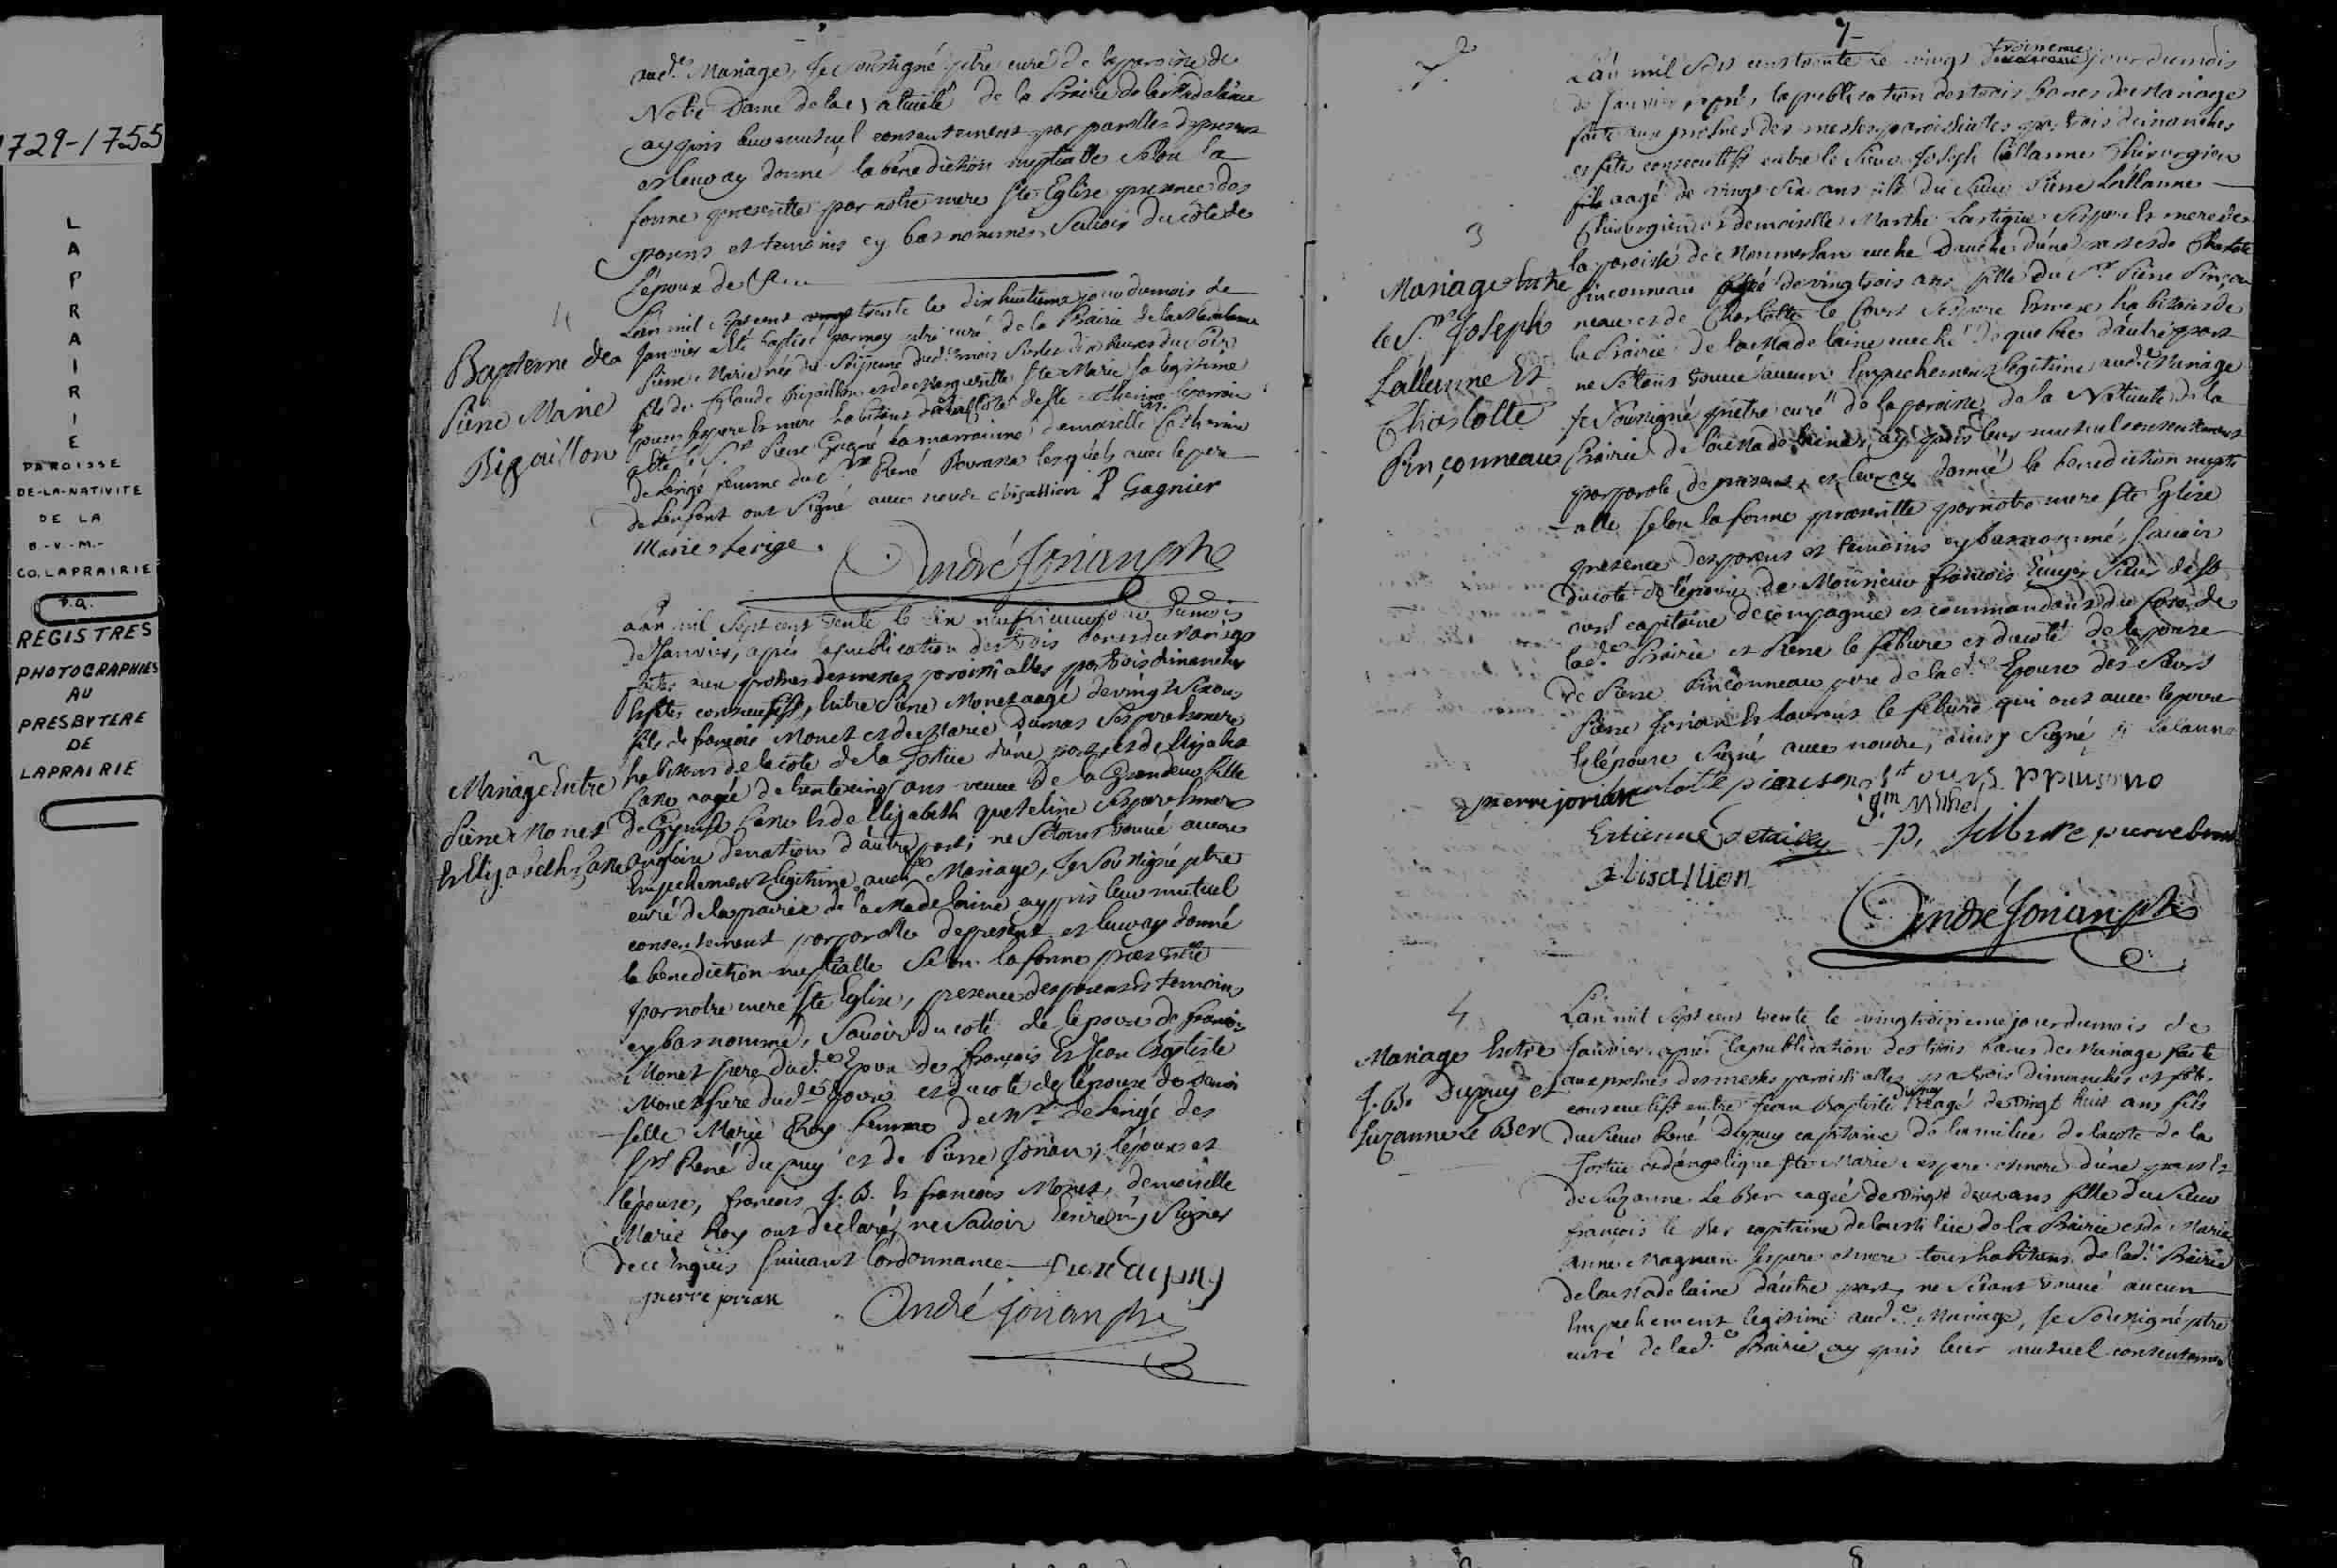 1729-1755
LAPRAIRIE
PAROISSE
DE-LA-NATIVITE
DE LA
B.-V.-M.-
CO. LAPRAIRIE
P.Q.
REGISTRES
PHOTOGRAPHIES
AU
PRESBYTERE
DE
LAPRAIRIE
aud.e Mariage, Je soussigné ptre curé de la paroisse de
Notre Dame de la Nativité de la Prairie de la Madelaine
ay pris leur mutuel consentement par parolles de present
et leur ay donné la bénédiction nuptialle selon la
forme prescritte par notre mere Ste Eglise presence des
parens et temoins cy bas nommés, Savoir du côté de
l'époux de
4
Bapteme de
Piere Marie
Bizaillon
L'an mil sept cent trente le dix huitieme jour du mois de
Janvier a été baptisé par moy ptre curé de la Prairie de la Madelaine
Piere Marie né du dud. mois sur les dix heures du soir
fils de Claude Bizaillon et de Marguerite Ste Marie sa legitime
épouse ses pere et mere habitans de la côte de Ste Catherine le parain
a été le Sr Piere Gagné la marainne demoiselle Catherine
de Lerige femme du Sr René Bourassa lesquels avec le pere
de l'enfant ont signé avec nous de c bisallion P Gagnier
Marie Lerige.
André Jorian ptre
2
Mariage Entre
Piere Monet
Et Elizabeth Cane
L'an mil sept cent trente le dix neufvieme jour du mois
de Janvier, après la publication des trois bancs du Mariage
faites aux prosnes des messes paroissialles par trois dimanches
Et fêtes consecutifs, Entre Piere Monet aagé de vingt six ans
fils de françois Monet et de Marie Dumas ses pere et mere
habitans de la côte de la Tortue d'une part, et de Elizabet
Cane aagée de trente cinq ans veuve de la Grandeur fille
de Cane Et de Elizabeth ses pere Et mere
anglaise de nation d'autre part, ne s'etant trouvé aucun
Empechement legitime aud.e Mariage, Je Soussigné ptre
curé de la prairie de la Madelaine ay pris leur mutuel
consentement par parolle de present et leur ay donné
la benediction nuptialle selon la forme prescritte
par notre mere Ste Eglise, presence des parens Et temoins
cy bas nommé, Savoir du coté de l'epoux de françois
Monet pere dud.e Epoux de françois Et Jean Baptiste
Monet frere dud.e Epoux et du coté de l'épouse de demoi
selle Marie Roy femme de Mr de Lerigé des
Srs René dupuy et de Piere Jorian; l'époux et
l'épouse, françois J. B. Et françois Monet, demoiselle
Marie Roy ont declaré ne savoir Ecrire ny Signer
de ce Enquis suivant l'ordonnance
pierre jorian
André Jorian ptre
7
2
3
Mariage Entre
le Sr Joseph
Lallanne Et
Charlotte
Pinçonneau
L'an mil sept cens trente le vingt troisieme jour du mois
de Janvier après la publication des trois bancs de Mariage
faite aux prosnes des messes paroissialles par trois dimanches
et fetes consecutifs entre le Sieur Joseph Lallanne Chirurgien
aagé de vingt six ans fils du Sieur Piere Lallanne
Chirurgien et demoiselle Marthe Lartigue ses pere Et mere de
la paroisse de d'une part et de Charlote
Pinconneau agé de vingt trois ans fille du Sr Piere Pinçon
neau et de Charlotte le Cours ses pere Et mere habitans de
la Prairie de la Madelaine evêché de quebec d'autre part
ne s'etant trouvé aucun Empechement legitime aud.e Mariage
Je Soussigné prêtre curé de la paroisse de la Nativité de la
Prairie de la Madelaine, ay pris leur mutuel consentement
par parole de present, et leur ay donné la benediction nupti
alle selon la forme prescritte par notre mere Ste Eglise
presence des parens et temoins cy bas nommé, savoir
du coté de l'époux de Monsieur françois Ecuyer Sieur de St
ours capitaine de compagnie et commandant du fort de
lad.e Prairie et Piere le febvre et du coté de l'epouse
de Piere Pinconneau pere de lad.e Epouse des Sieurs
Piere Jorian Et Laurent le febvre qui ont avec l'époux
Et l'épouse Signé avec nous, ainsy Signé J lalanne
pierre jorian charlotte pinsono St ours p pinsono
Etienne Detailly p. lefebvre
c bisallion
André Jorian ptre
4
Mariage Entre
J. B. Dupuy et
Suzanne Le Ber
L'an mil sept cens trente le vingt troisieme jour du mois de
Janvier après la publication des trois bancs de Mariage faite
aux prosnes des messes paroissialles par trois dimanches et fêtes
consecutifs entre Jean Baptiste Dupuy aagé de vingt huit ans fils
du Sieur René Dupuy capitaine de la milice de la cote de la
Tortue et d'angelique Ste Marie ses pere et mere d'une part Et
de Suzanne Le Ber aagée de vingt deux ans fille du Sieur
françois le Ber capitaine de la milice de la Prairie et de Marie
Anne Magnan ses pere et mere tous habitans de lad.e Prairie
de la Madelaine d'autre part, ne s'etant trouvé aucun
Empechement legitime aud.e Mariage, Je Soussigné ptre
curé de lad.e Prairie ay pris leur mutuel consentement